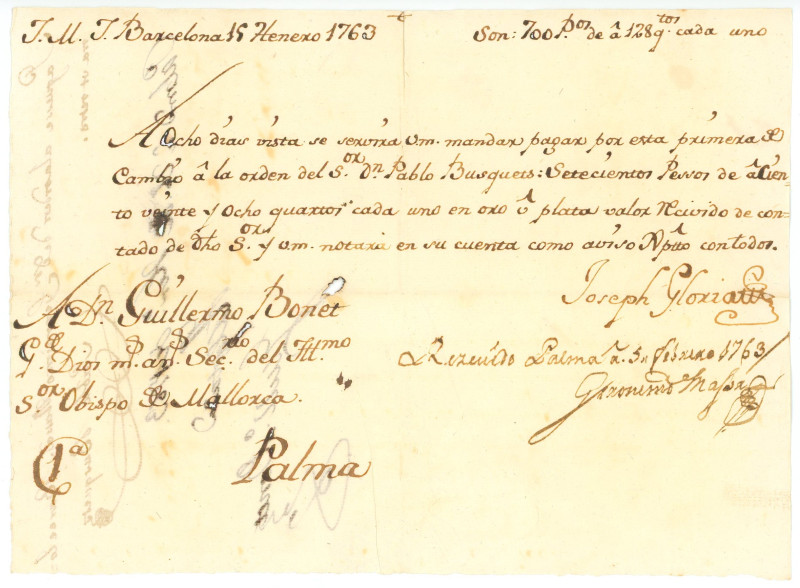 J. M. J. Barcelona 15 Henero 1763
Son: 700 P.os de â 128 q.tos cada uno
A Ocho días vista se servira v.m. mandar pagar por esta primera de
Cambio â la orden del S.or Dn Pablo Busquets: Setecientos Pessos de â Cien-
to veinte y Ocho quartos cada uno en oro û plata valor recivido de con-
tado de dho S.or y v.m. notarà en su cuenta como aviso con todos.
Joseph Gloria
A Dn Guillermo Bonet
Ge Dios m.s an.s Sec.rio del Ill.mo
S.or Obispo de Mallorca.
Recivido Palma a 5 febrero 1763
Geronimo
1a
Palma